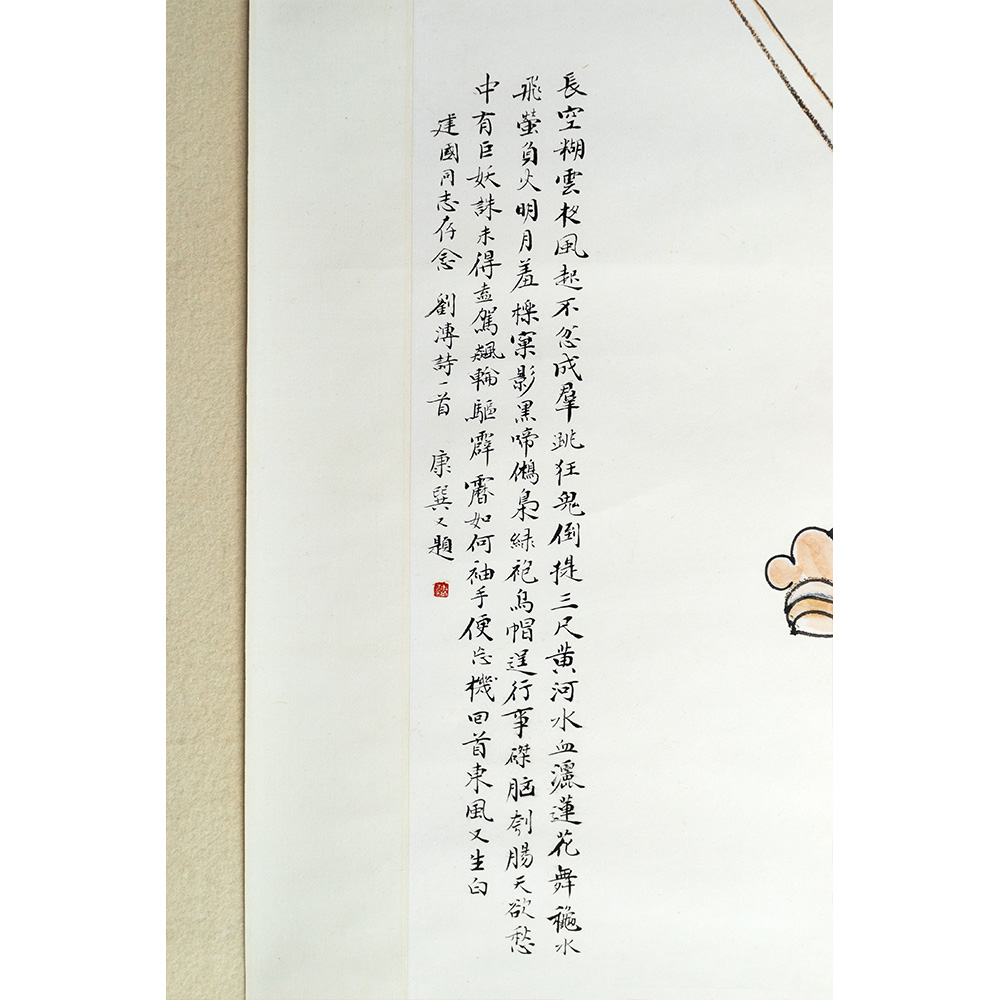 長空糊雲杈風起不忿成羣跳狂鬼倒提三尺黃河水血灑蓮花舞龝水
飛螢負火明月羞櫟窠影黑啼鵂梟綠袍烏帽逞行事磔脳刳腸天欲愁
中有巨妖誅未得盍駕飆輪驅霹靂如何袖手便忘機回首東風又生白
建國同志存念 劉溥詩一首 康巽又題